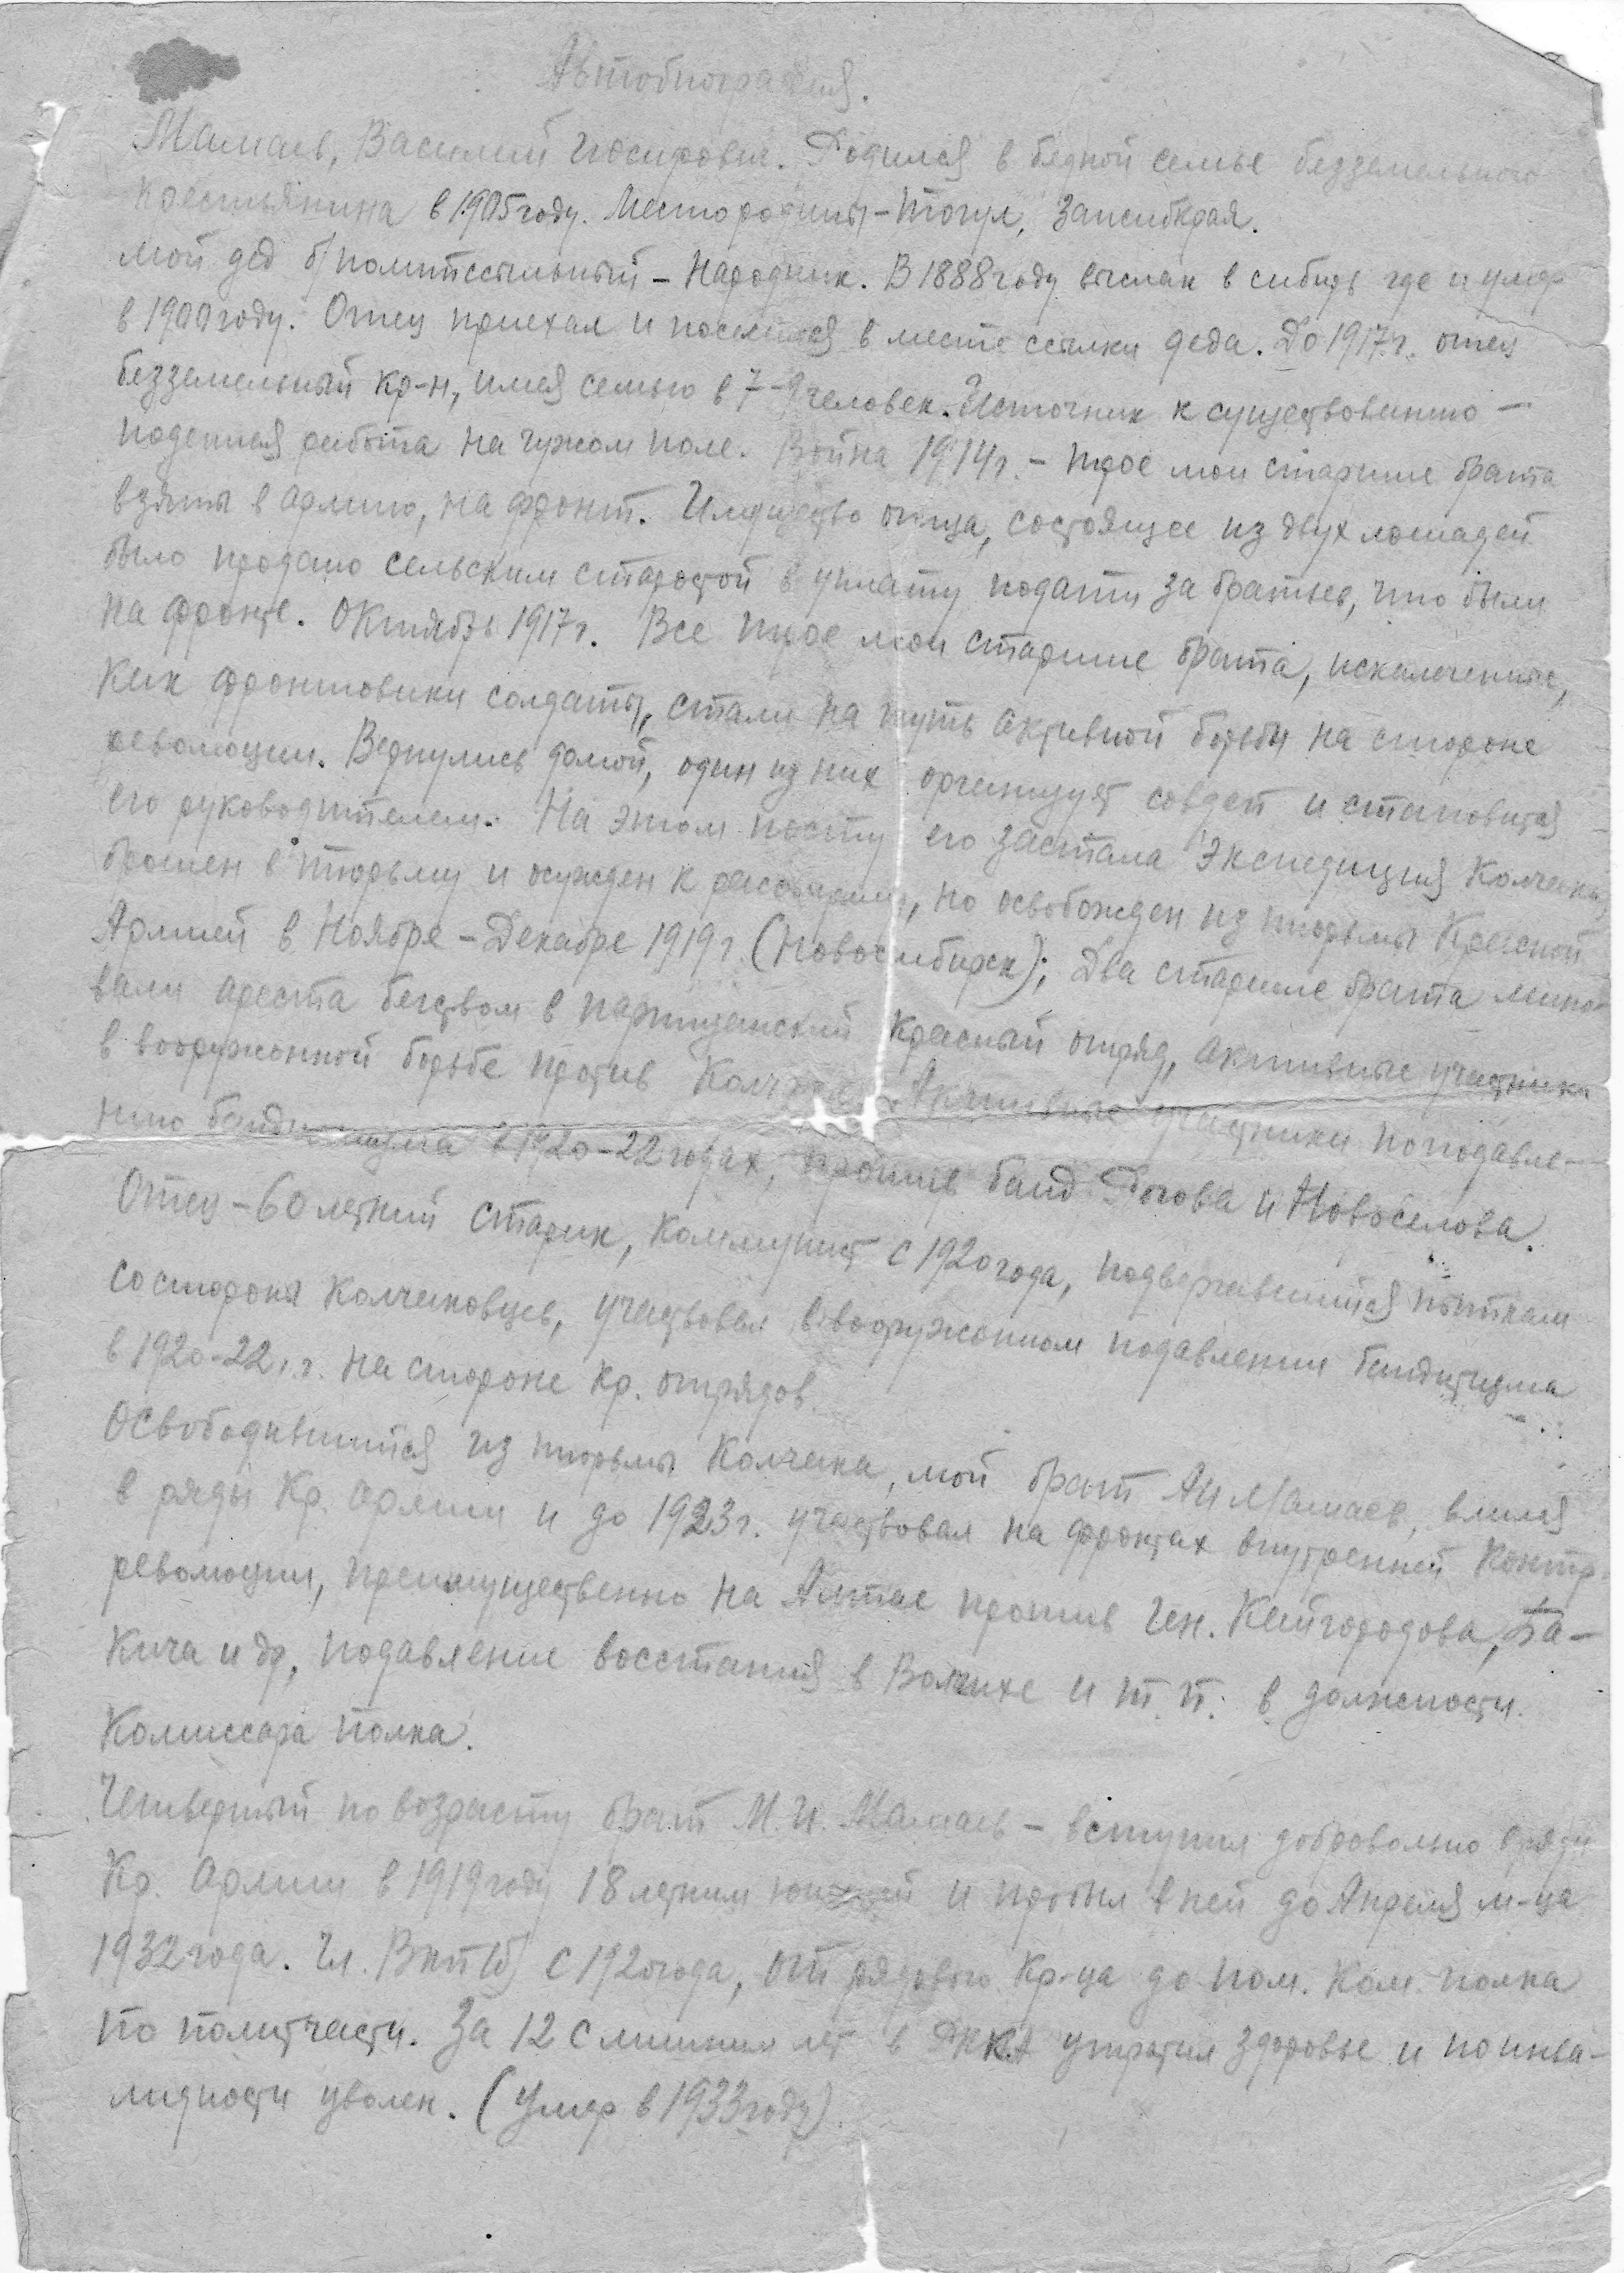 Автобиография.
Мамаев, Василий Иосифович. Родился в бедной семье безземельного
крестьянина в 1905 году. Место родины - Тогул, Запсибкрая.
мой дед б/политссыльный - Народник. В 1888 году выслан в сибирь где и умер
в 1900 году. Отец приехал и поселился в месте ссылки деда. До 1917.г. отец
безземельный кр-н, имея семью в 7-9 человек. Источник к существованию -
поденная работа на чужом поле. Война 1914г. - трое мои старшие брата
взяты в армию, на фронт. Имущество отца, состоящее из двух лошадей
было продано сельским старостой в уплату подати за братьев, что были
на фронте. Октябрь 1917г. Все трое мои старшие брата, искалеченные,
как фронтовики солдаты, стали на путь активной борьбы на стороне
революции. Вернулись домой, один из них организует совдеп и становится
его руководителем. На этом посту его застала экспедиция Колчака,
брошен в тюрьму и осужден к расстрелу, но освобожден из тюрьмы Красной
Армией в Ноябре - Декабре 1919г. (Новосибирск); Два старшие брата мино-
вали ареста бегством в партизанский красный отряд, активные участники
в вооружонной борьбе против Колчака. Активные участники по подавле-
нию бандитизма в 1920-22 годах, против банд Рогова и Новоселова.
Отец - 60 летний старик, коммунист с 1920 года, подвергавшийся пыткам
со стороны Колчаковцев, участвовал в вооружонном подавлении бандитизма
в 1920-22.г.г. на стороне кр. отрядов.
Освободившийся из тюрьмы Колчака, мой брат АИ Мамаев, влился
в ряды Кр. Армии и до 1923г. участвовал на фронтах внутренней контр-
революции, преимущественно на Алтае против Ген. Кайгородова, Ба-
кича и др, подавление восстания в Волчихе и т.п. в должности
Комиссара полка.
Четвертый по возрасту брат М.И. Мамаев - вступил добровольно в ряды
Кр. Армии в 1919 году 18 летним юношей и пробыл в ней до Апреля м-ца
1932 года. Чл. ВКП(б) с 1920 года, от рядового кр-ца до пом. ком. полка
по политчасти. За 12 с лишним лет в РККА утратил здоровье и по инва-
лидности уволен. (Умер в 1933 году)